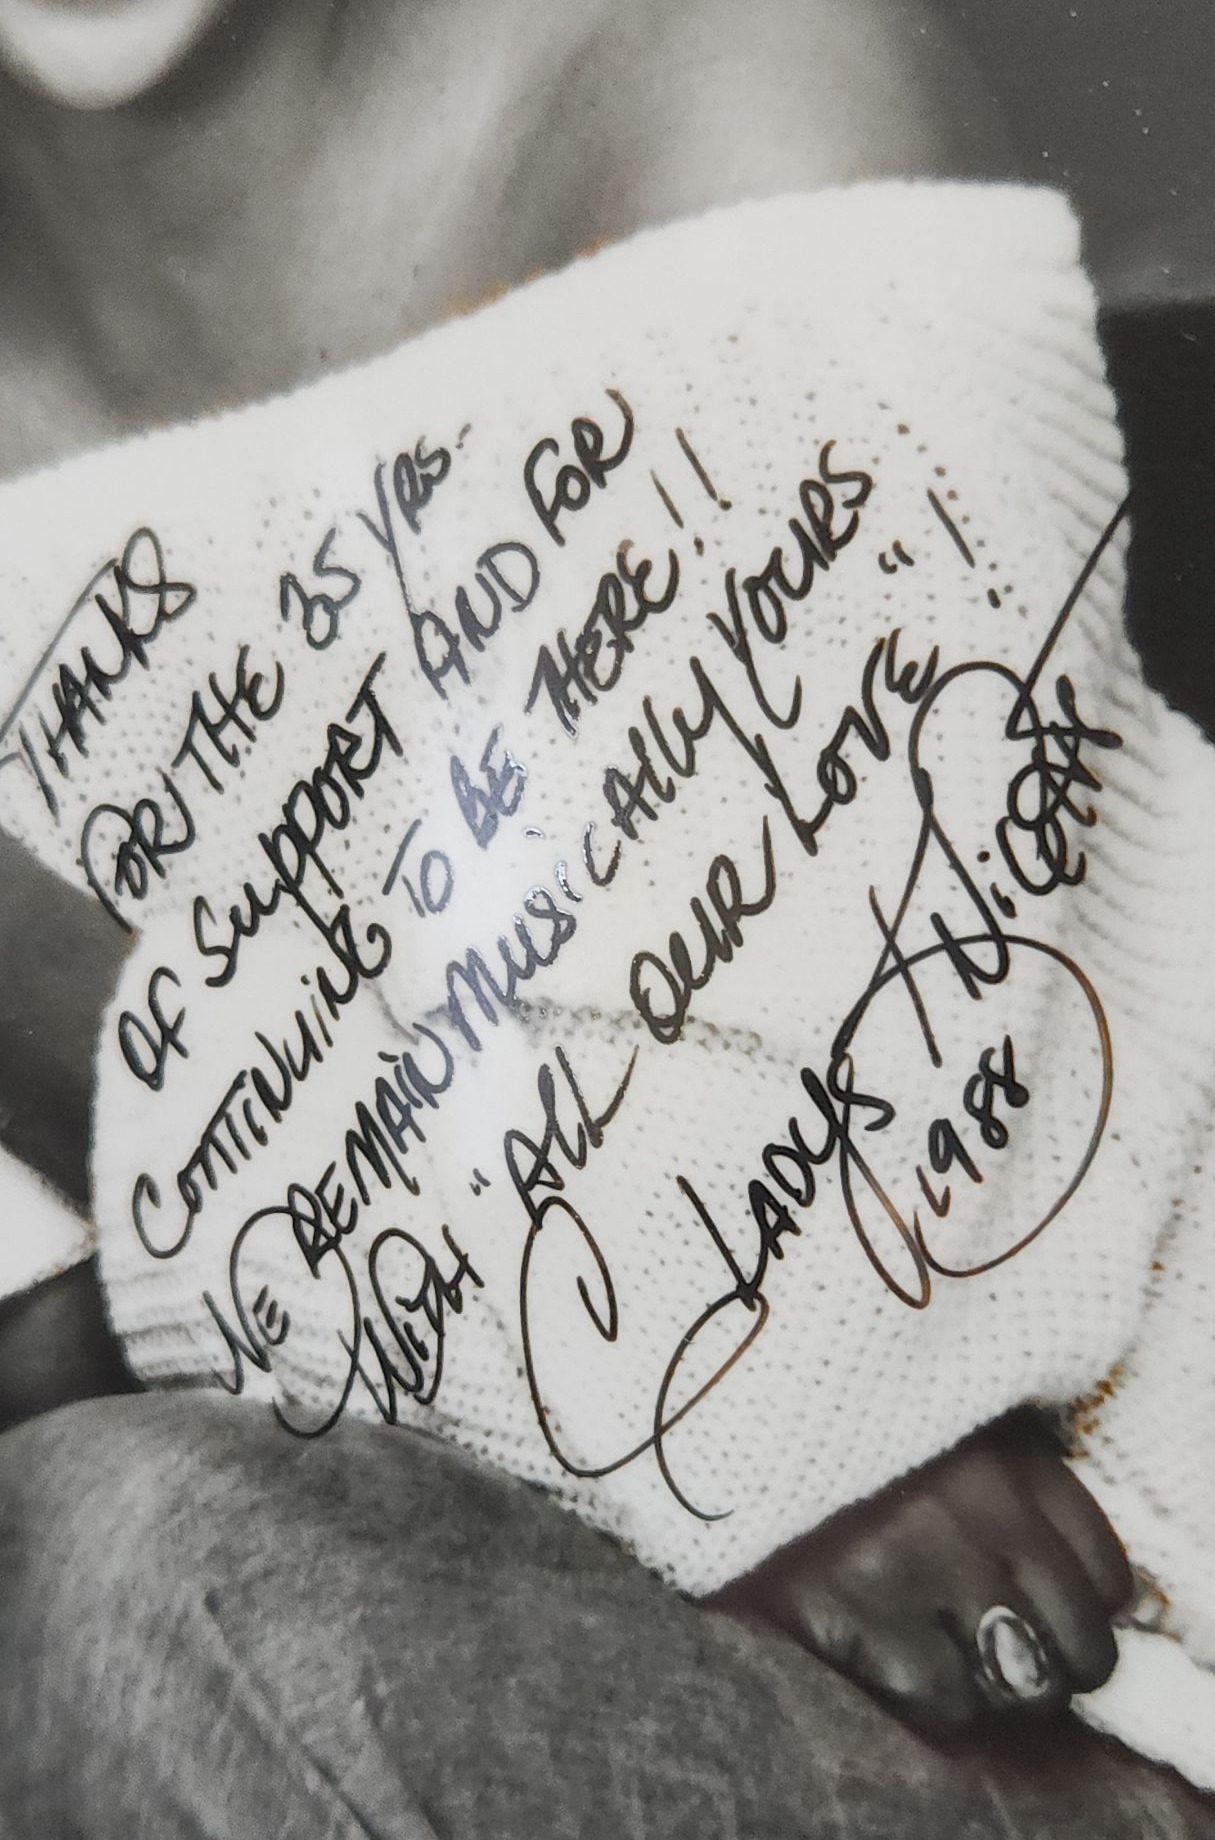 THANKS
FOR THE 35 YRS.
OF SUPPORT AND FOR
CONTINUING TO BE THERE!!
WE REMAIN MUSICALLY YOURS
WITH "ALL OUR LOVE"!
GLADYS KNIGHT
1988